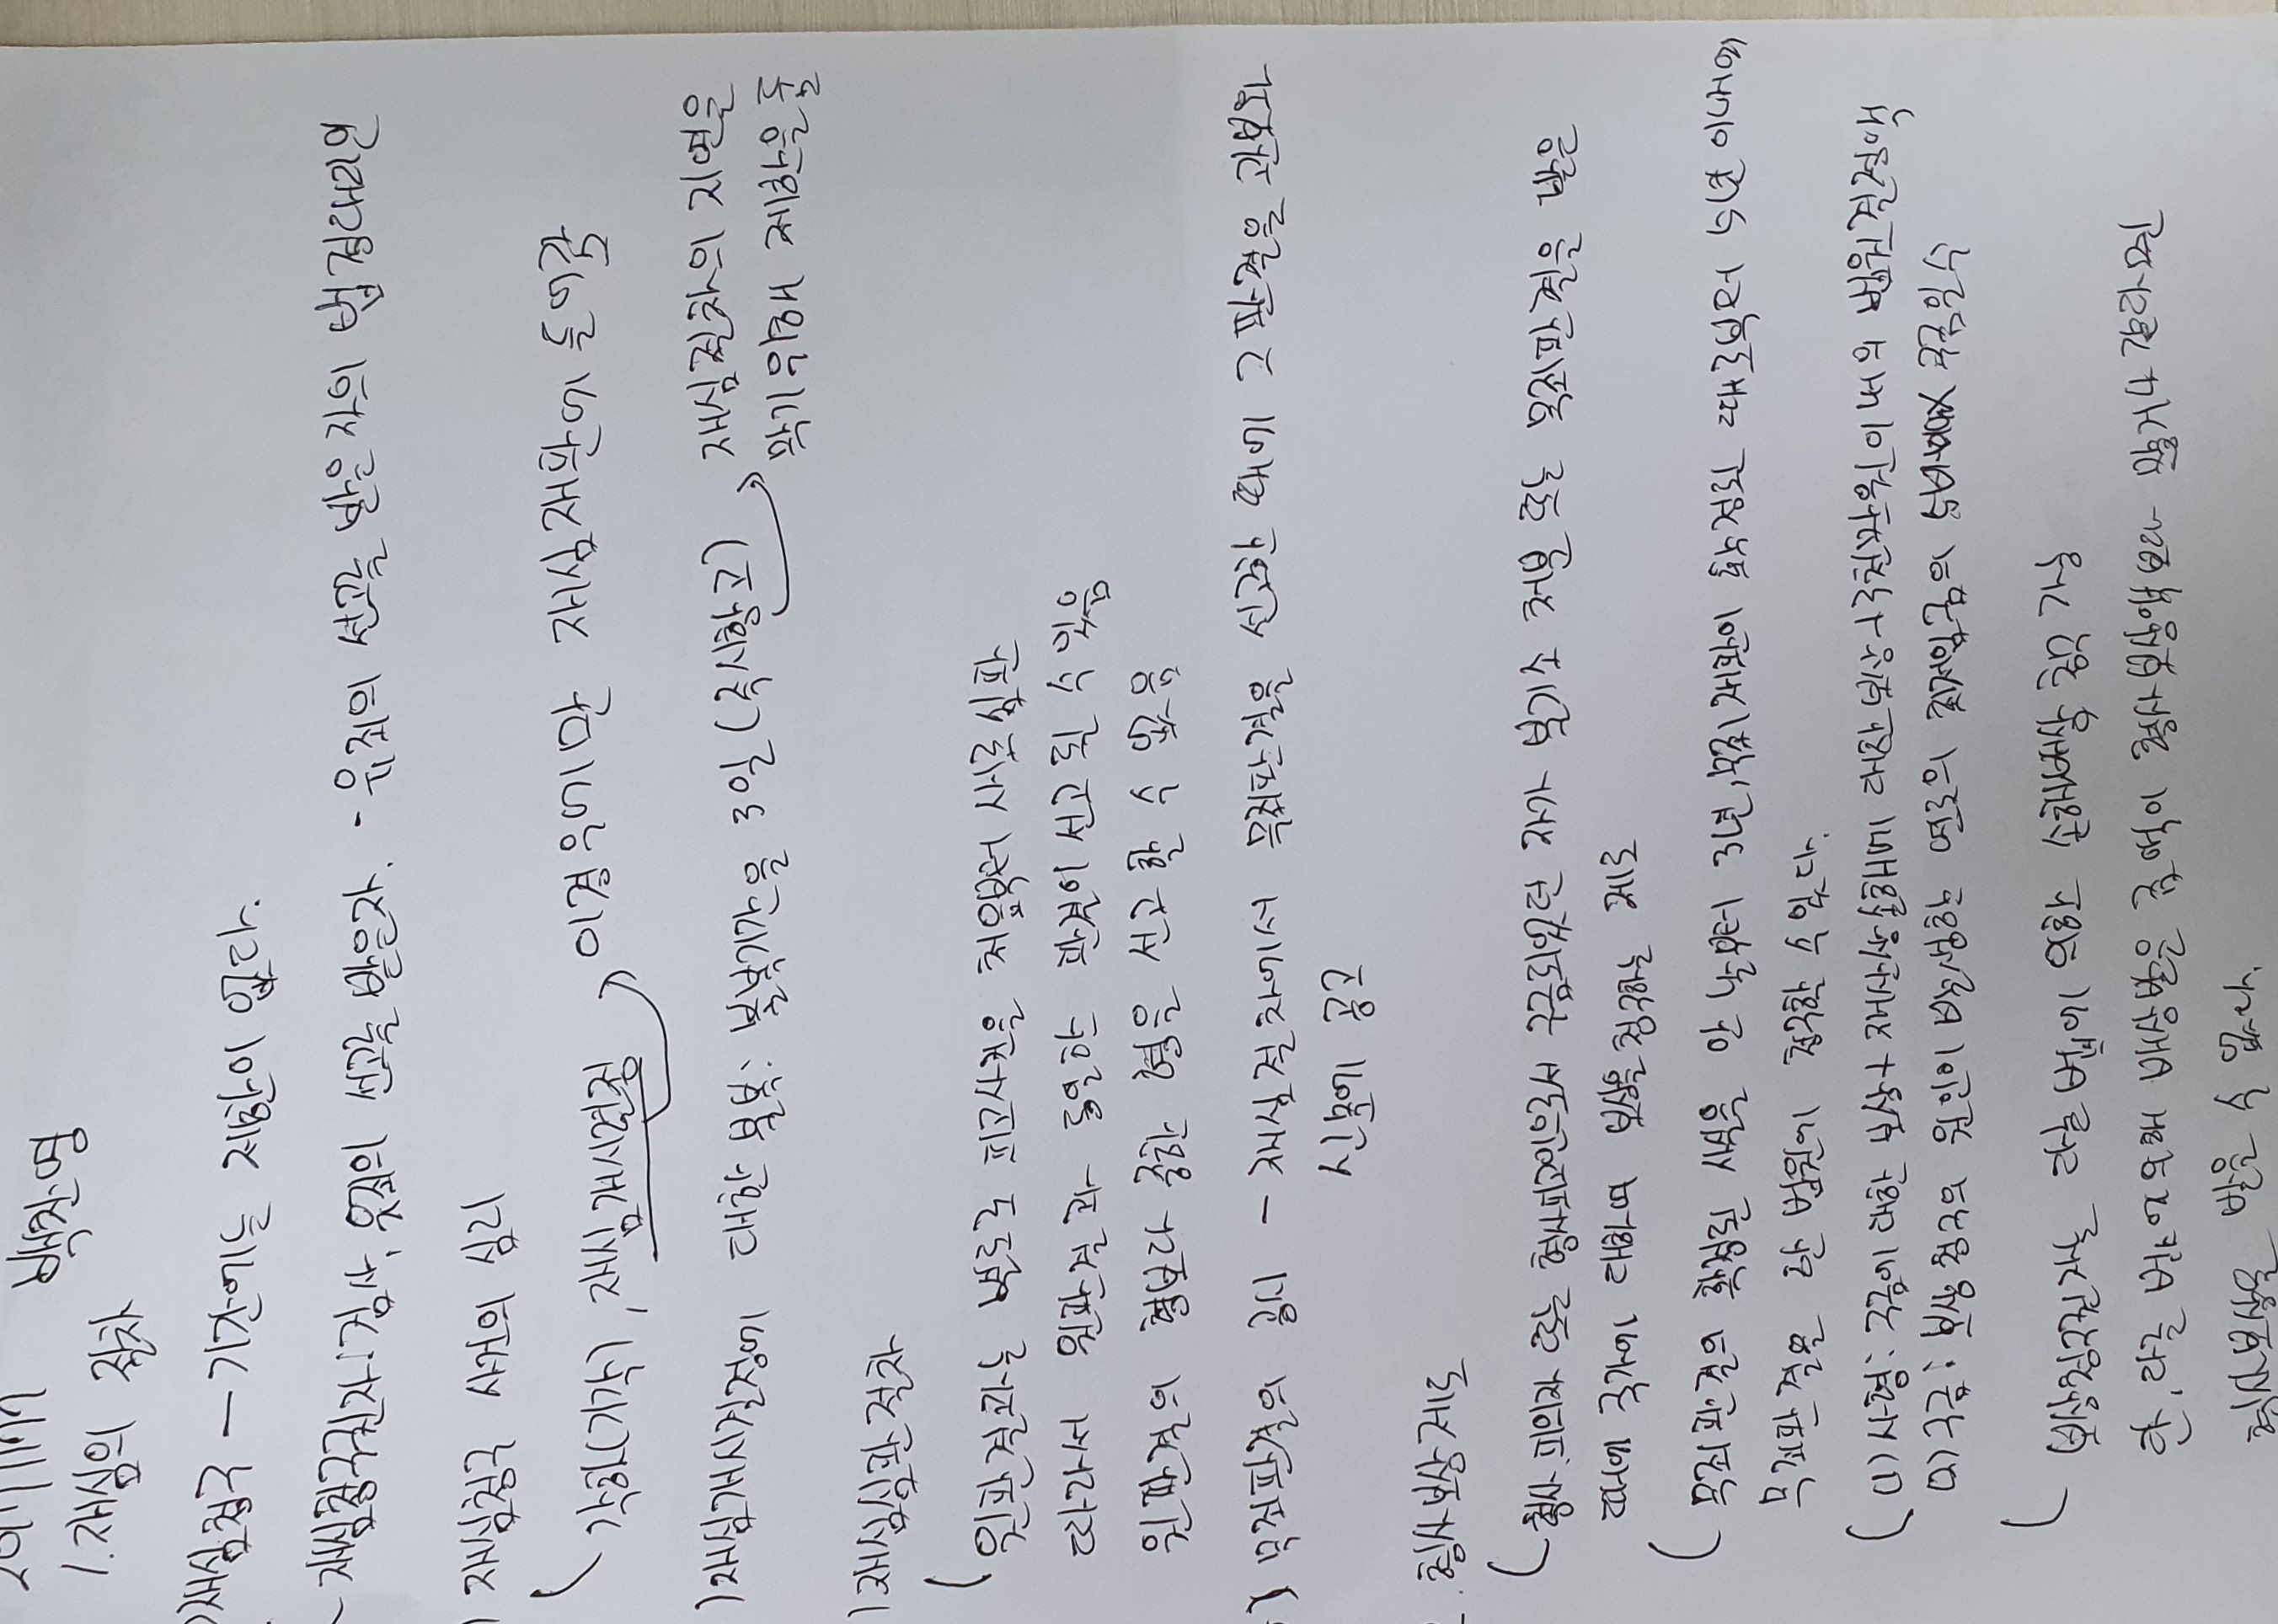 백찬영
1. 재심의 절차
)재심청구 - 기간에는 제한이 없다.
- 재심청구권자: 검사, 유죄의 선고를 받은자. - 유죄의 선고를 받은 자의 법정대리인
) 재심청구 사건의 심리
각하(기각), 재심개시결정 이경우에만 재심재판에 들어감
)재심개시결정에 대한 불복: 불복기간을 3일 (즉시항고) 재심절차의 지연을
막기위해 제한을 둠
)재심심판절차
원판결과는 별도로 피고사건을 처음부터 새로 심판
따라서 원판결과 동일한 판결이 선고 될 수 있음
원판결의 형보다 중한 형을 선고 할 수 없음
) 무죄판결의 공시 - 재심절차에서 무죄판결을 선고한 때에 그 판결을 관보와
신문에 공고
. 형사보상제도
형사 피의자 또는 형사피고인으로서 구금되었던 자가 불기소 처분 또는 무죄판결을 받은
때에 국가에 대하여 보상을 청구하는 제도
무죄판결의 확정된 사실을 안 날부터 3년, 무죄재판이 확정된 때로부터 5년 이내에
무죄판결을 한 법원에 청구할 수 있다.
(1) 사형: 구금에 대한 보상+ 재산상손해에 대한 보상+3천만원 이내의 법원결정액
(2) 구금: 보상청구의 원인이 발생한 연도의 최저임금의 5배 구금일수
보상청구권자는 다른 법에 의한 손해배상 청구 가능
단, 다른 법에 의해 배상받은 금액이 형사보상액보다 많거나 같다면
형사보상을 받을 수 없다.